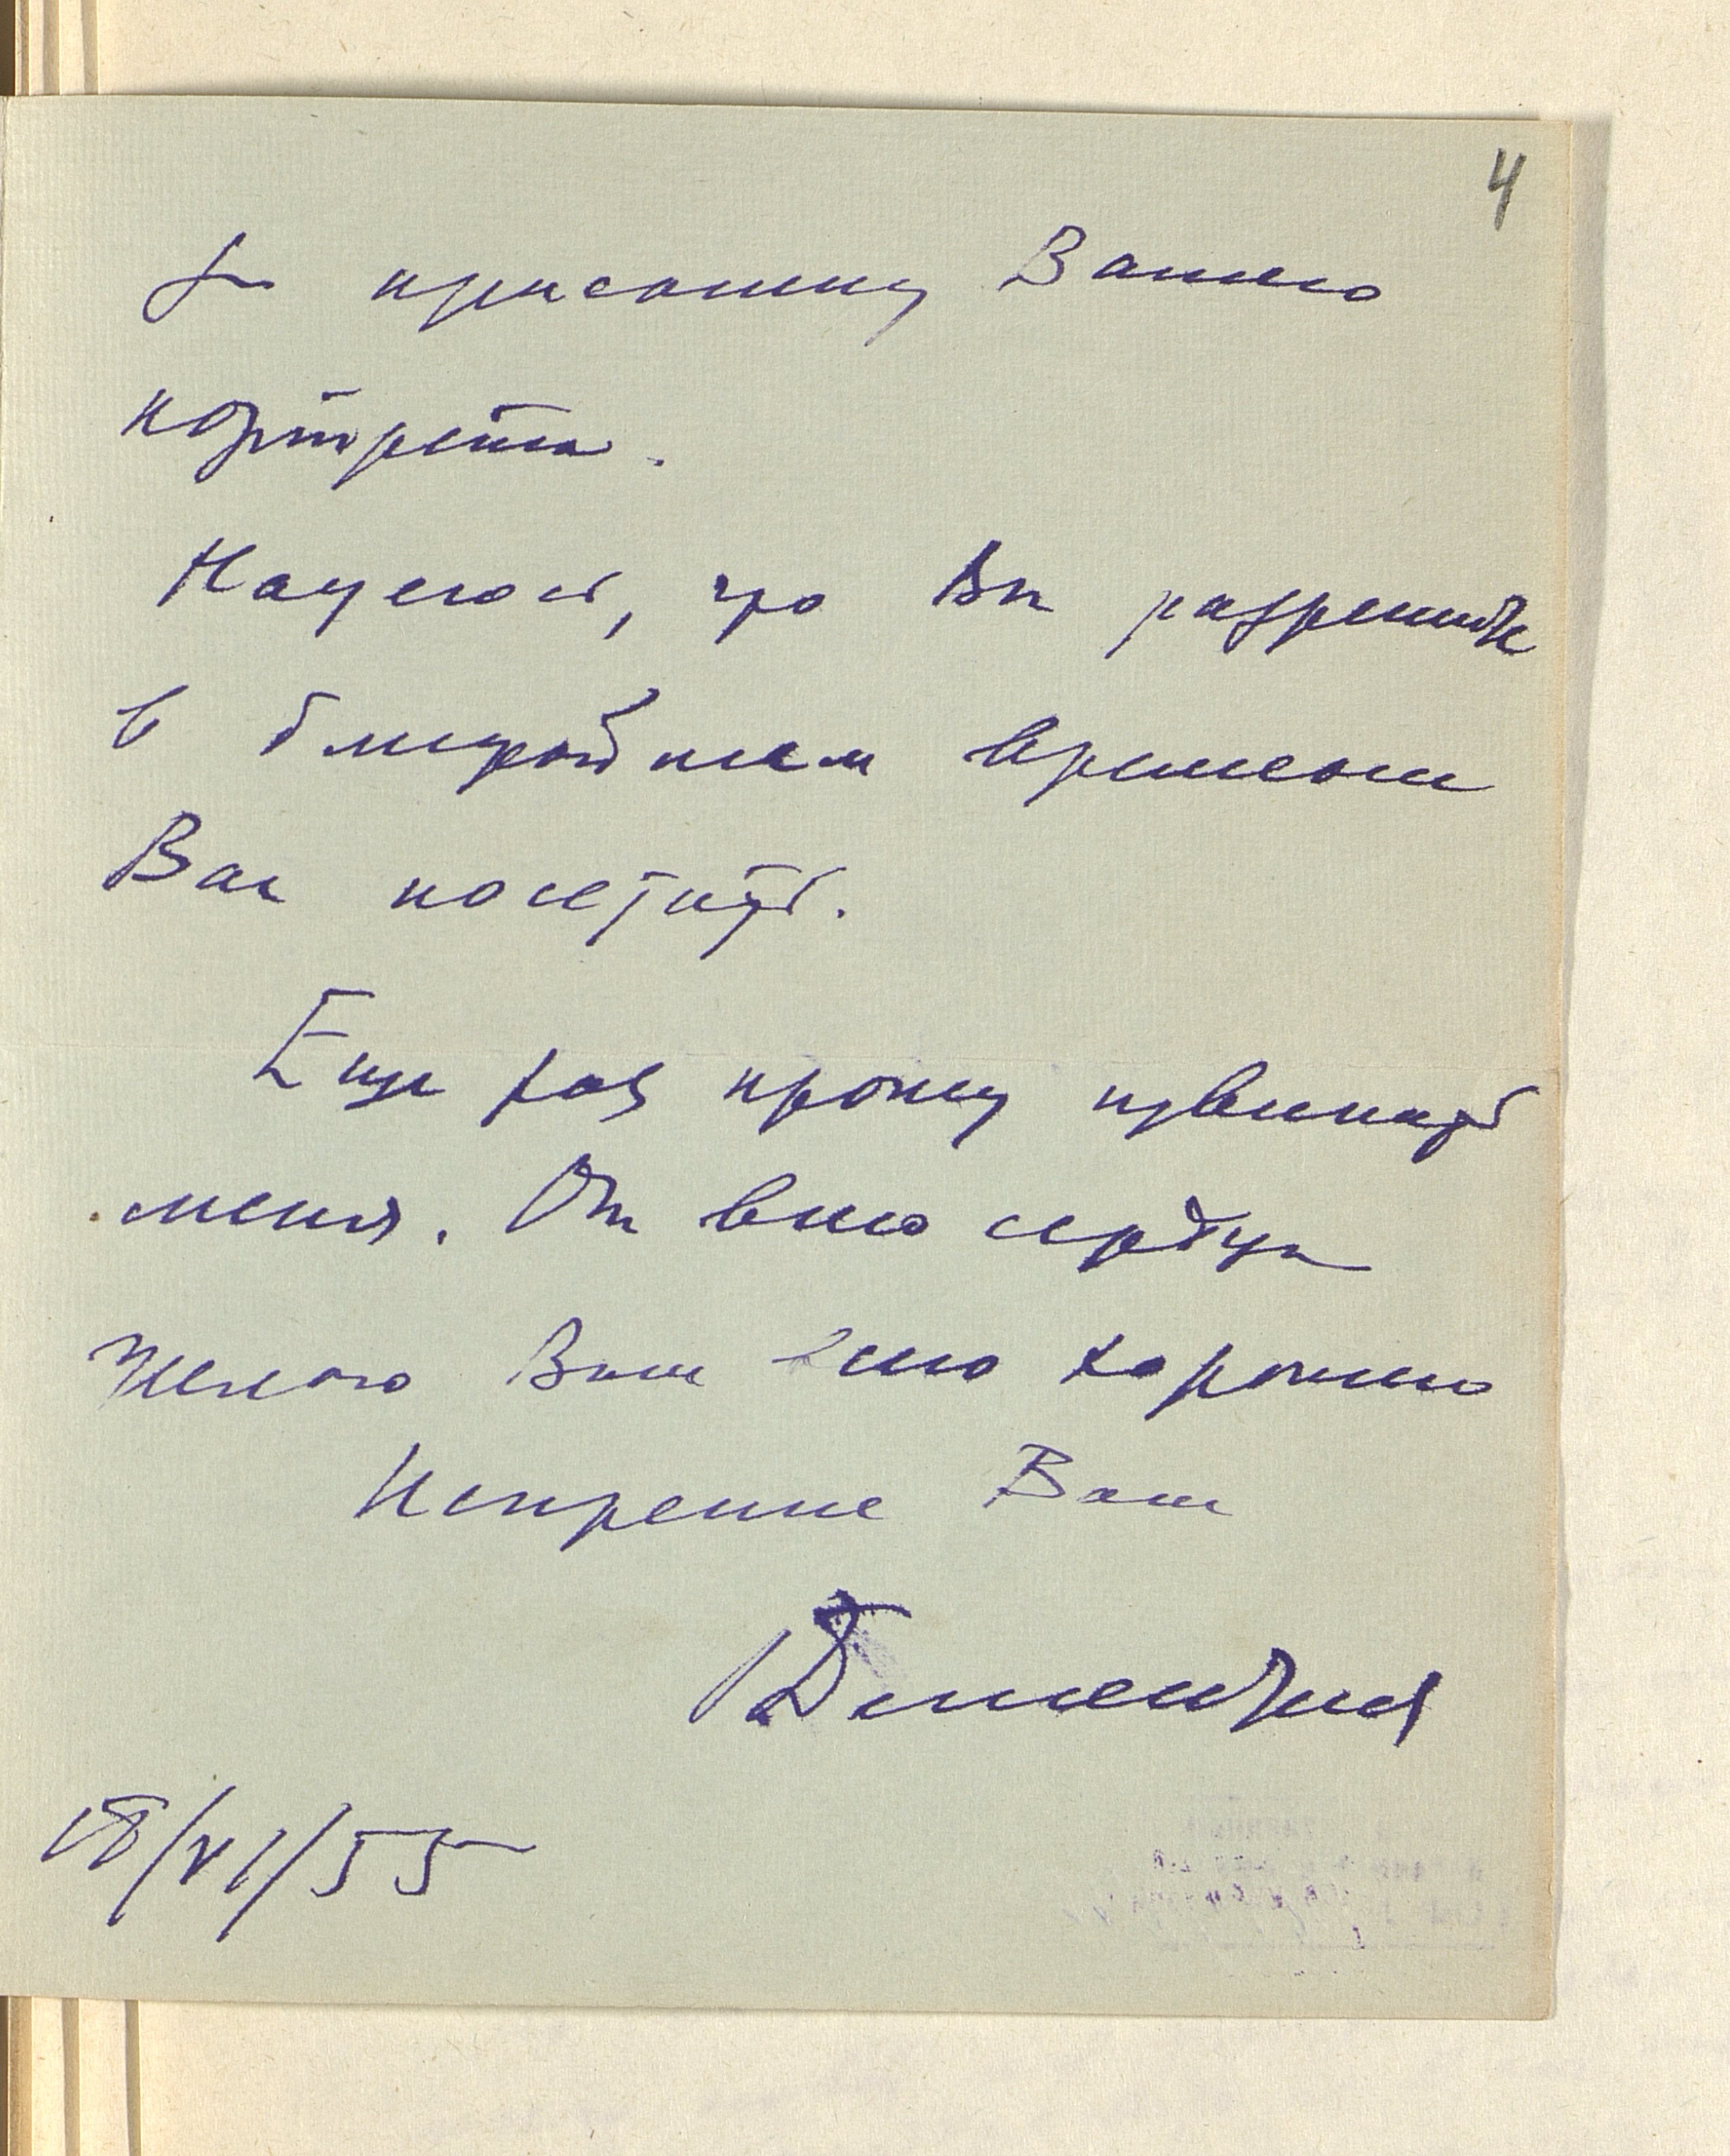 4
за присылку Вашего
портрета.
Надеюсь, что Вы разрешите
в ближайшем времени
Вас посетить.
Еще раз прошу извинить
меня. От всего сердца
Желаю Вам всего хорошего
Искренне Ваш
18/VI/55